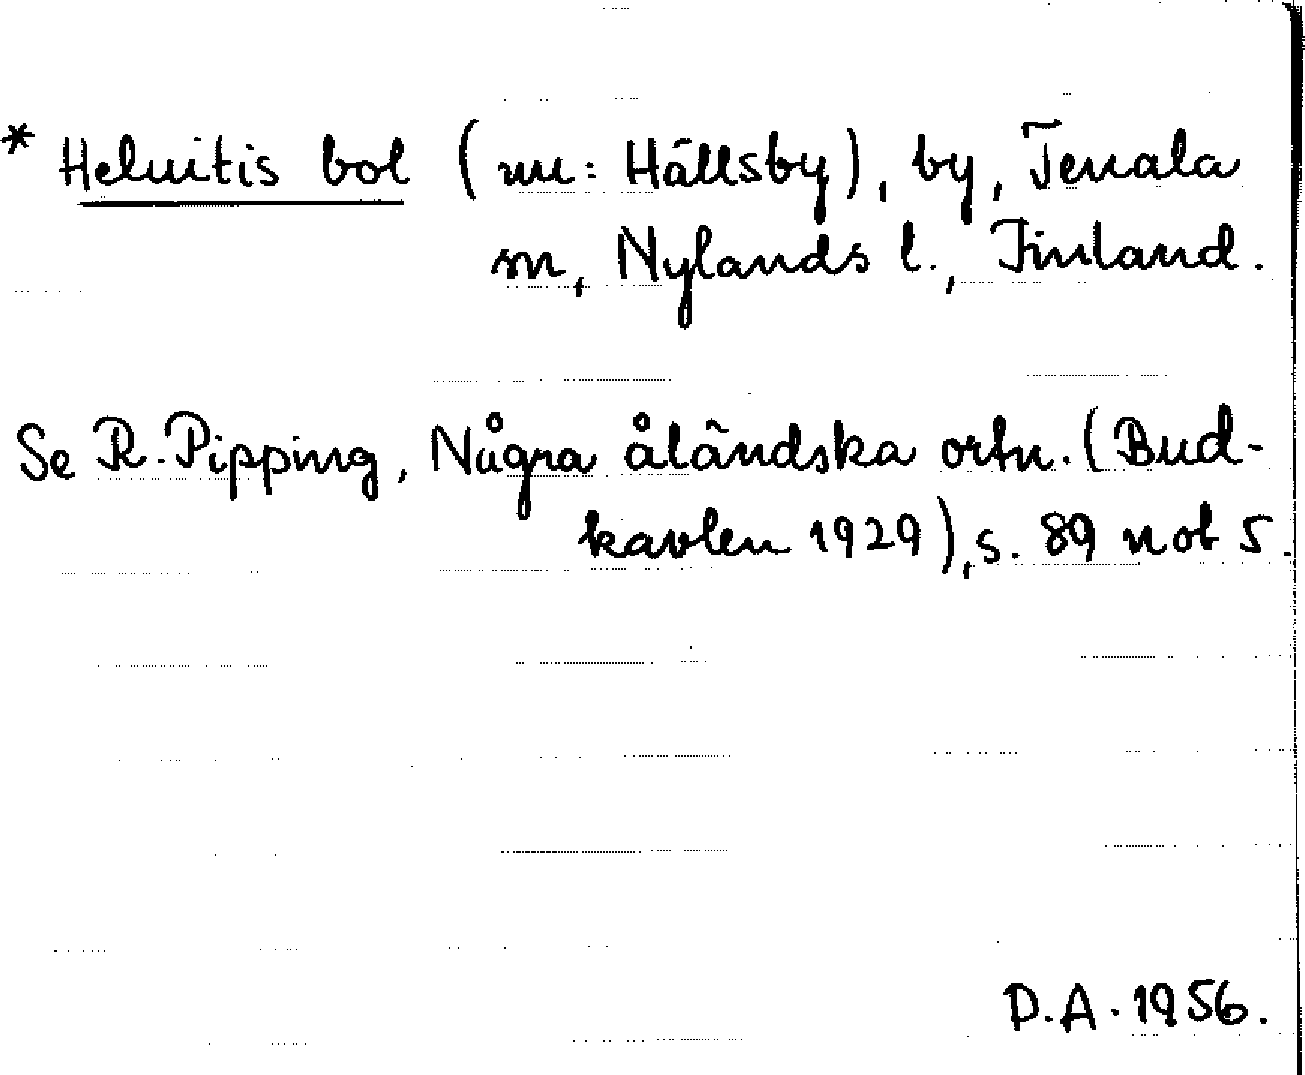 * Heluitis bol (nu: Hällsby), by, Tenala
sn, Nylands l., Finland.
Se R. Pipping, Några åländska ortn. (Bud-
kavlen 1929), s. 89 not 5.
D.A. 1956.